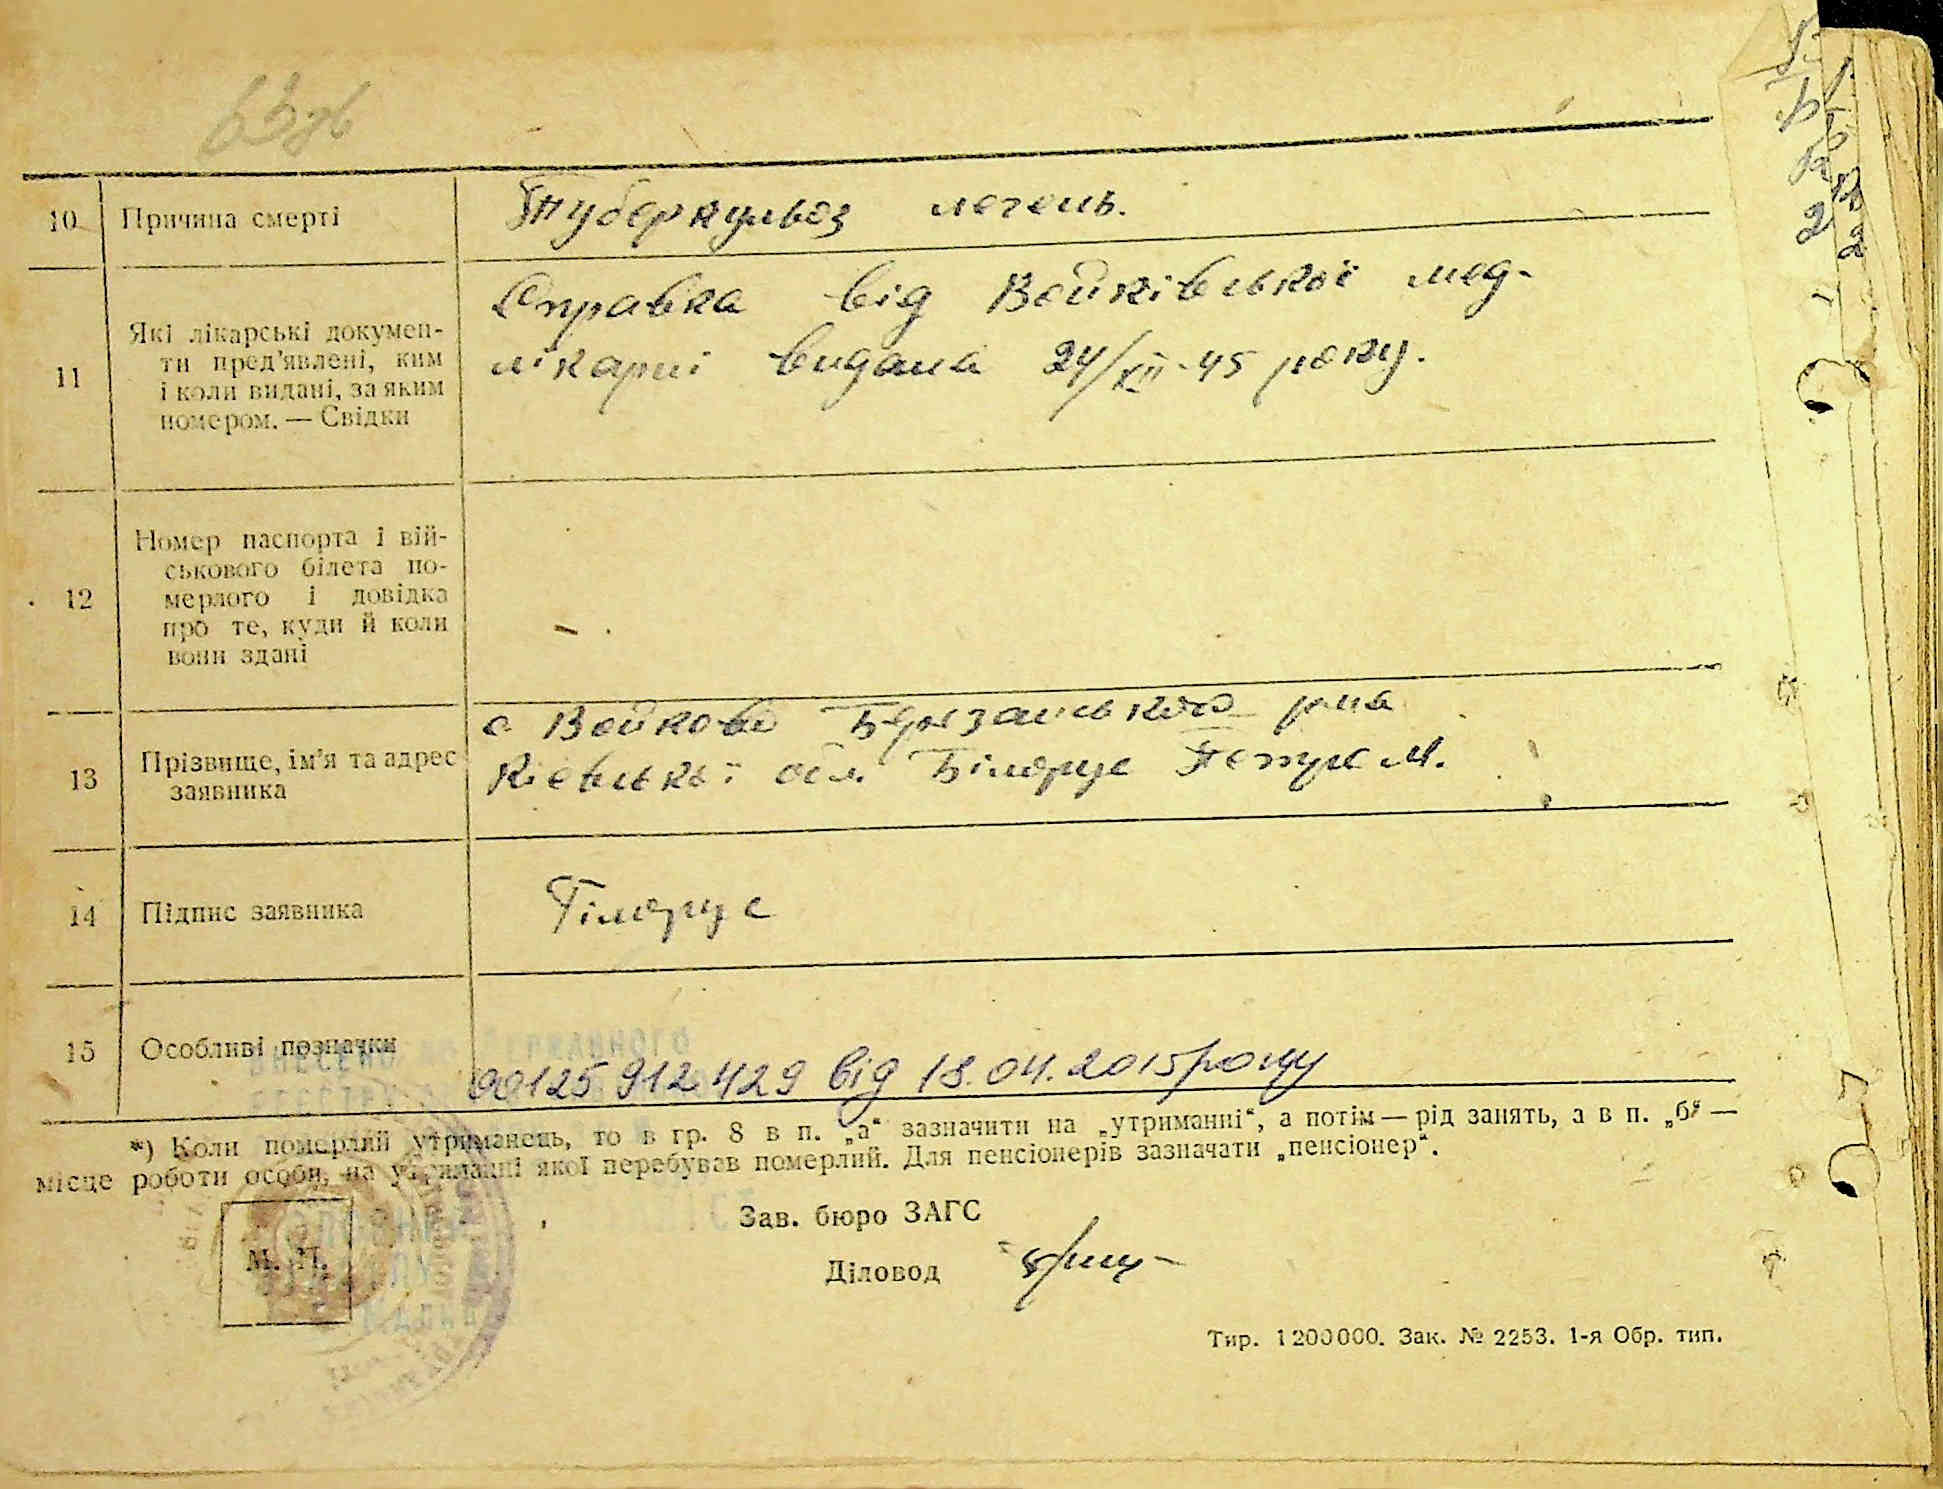 63зв
10 Причина смерті Туберкульоз легень.
11 Які лікарські докумен-
ти пред'явлені, ким
і коли видані, за яким
номером. — Свідки
Справка від Войківської мед-
лікарні видана 24/XII-45 року.
12 Номер паспорта і вій-
ськового білета по-
мерлого і довідка
про те, куди й коли
вони здані
– .
13 Прізвище, ім'я та адрес
заявника
с Войкове Березанського р-на
Київської обл. Білорус М.
14 Підпис заявника Білорус
15 Особливі позначки 00125912429 від 18.04.2015року
*) Коли померлий утриманець, то в гр. 8 в п. „а“ зазначити на „утриманні“, а потім — рід занять, а в п. „б“ —
місце роботи особи, на утриманні якої перебував померлий. Для пенсіонерів зазначати „пенсіонер“.
М. П.
Зав. бюро ЗАГС
Діловод
Тир. 1200000. Зак. № 2253. 1-я Обр. тип.